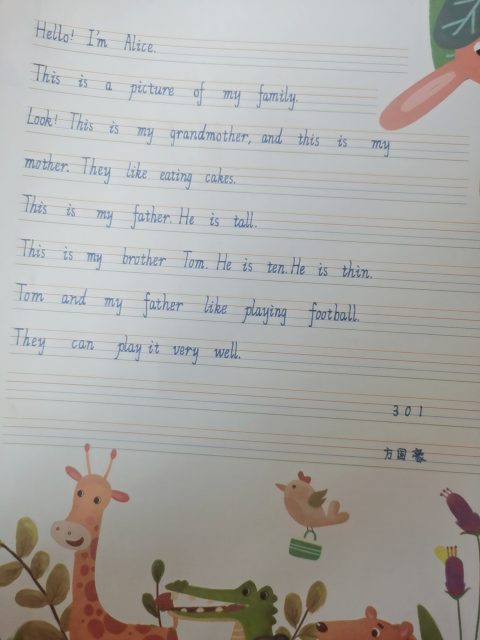 Hello! I'm Alice.
This is a picture of my family.
Look! This is my grandmother, and this is my
mother. They like eating cakes.
This is my father. He is tall.
This is my brother Tom. He is ten. He is thin.
Tom and my father like playing football.
They can play it very well.
301
方国豪